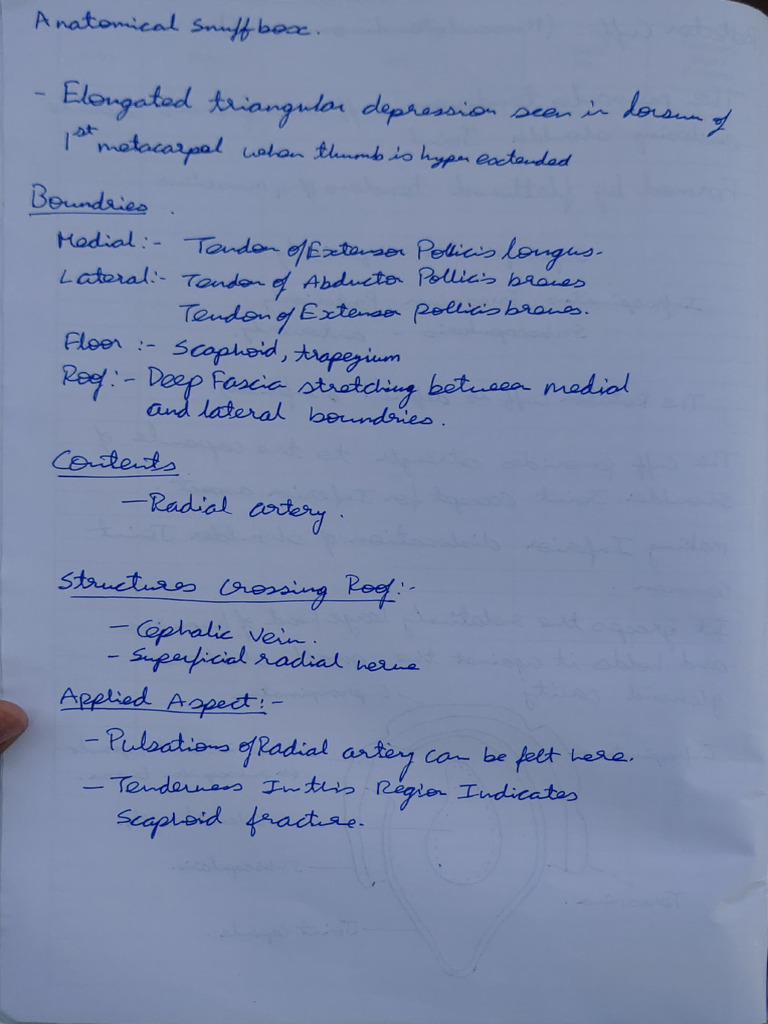 Anatomical snuffbox.
- Elongated triangular depression seen in dorsum of
1st metacarpal when thumb is hyper extended
Boundries
Medial:- Tendon of Extensor Pollicis longus.
Lateral:- Tendon of Abductor Pollicis breves
Tendon of Extensor pollicis breves.
Floor :- Scaphoid, trapezium
Roof:- Deep Fascia stretching between medial
and lateral boundries.
Contents
- Radial artery.
Structures crossing Roof:-
- Cephalic vein.
- Superficial radial nerve
Applied Aspect:-
- Pulsations of Radial artery can be felt here.
- Tenderness In this Region Indicates
Scaphoid fracture.